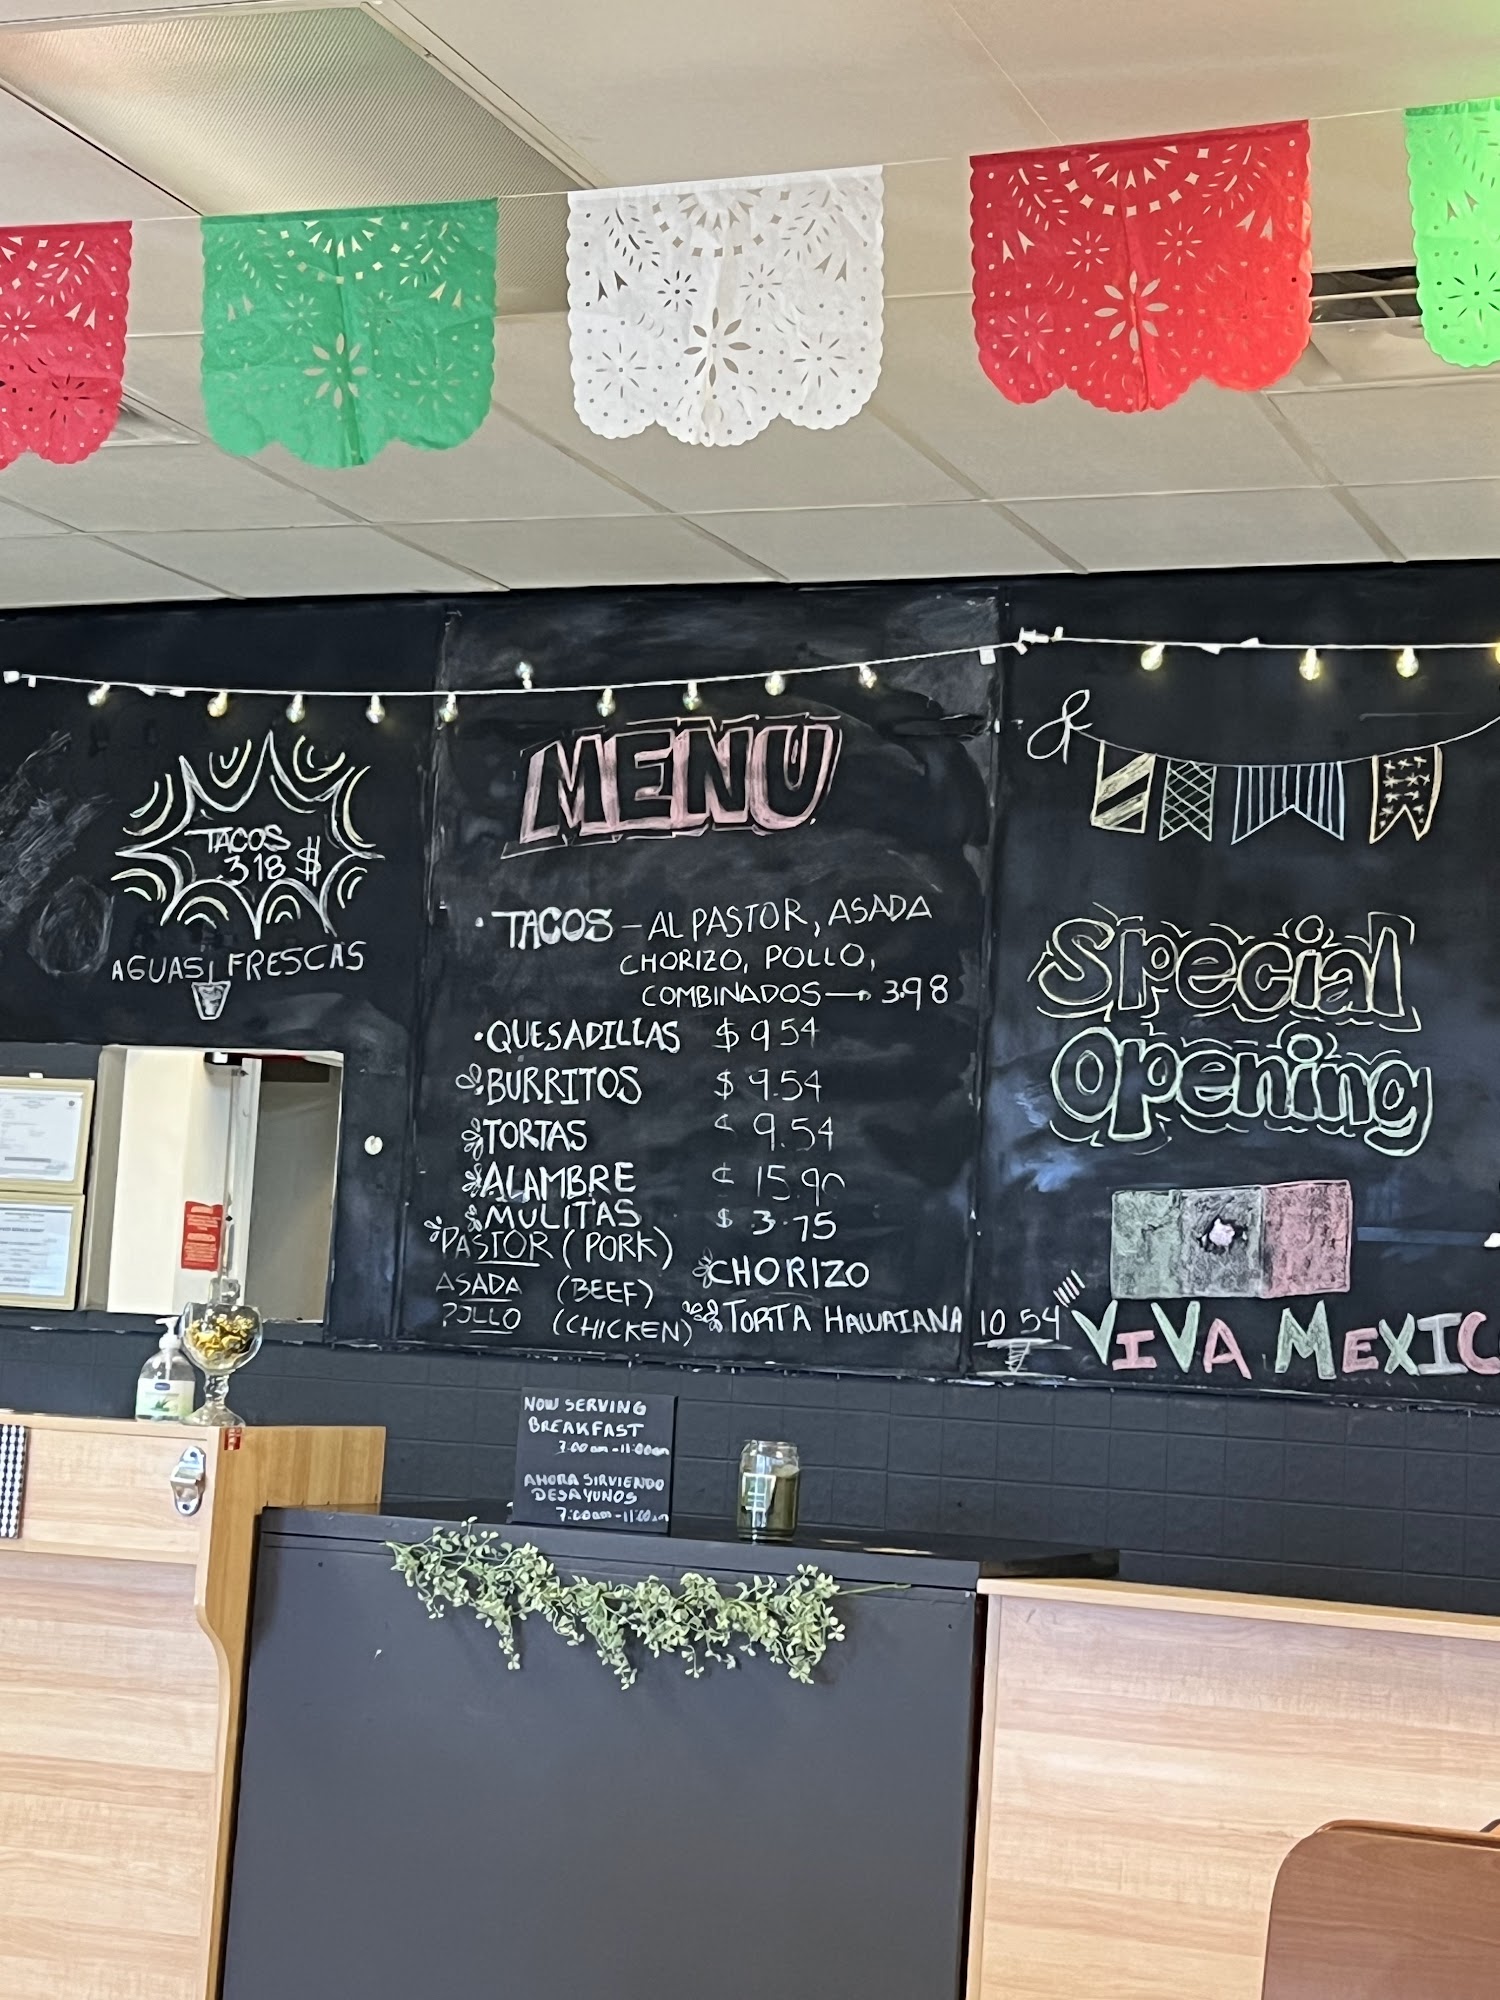 TACOS
3.18 $
AGUAS FRESCAS
MENU
• TACOS – AL PASTOR, ASADA
CHORIZO, POLLO,
COMBINADOS → 3.98
• QUESADILLAS $ 9.54
BURRITOS $ 9.54
TORTAS 9.54
ALAMBRE 15.90
MULITAS $ 3.75
PASTOR (PORK)
ASADA (BEEF)
POLLO (CHICKEN)
CHORIZO
TORTA HAWAIANA 10.54
Special
Opening
VIVA MEXIC
NOW SERVING
BREAKFAST
7:00am-11:00am
AHORA SIRVIENDO
DESAYUNOS
7:00am-11:00am